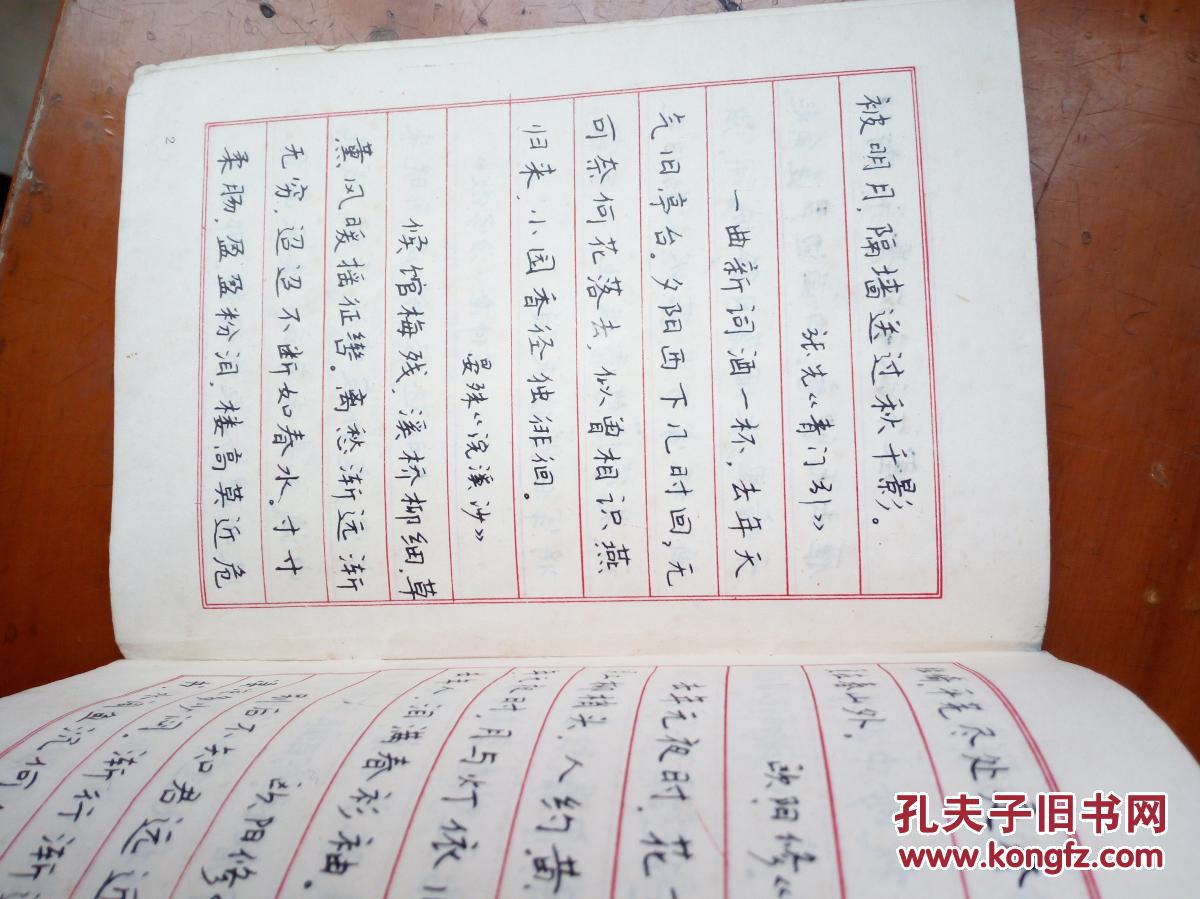 被明月,隔墙送过秋千影。
张先《青门引》
一曲新词酒一杯,去年天
气旧亭台。夕阳西下几时回,无
可奈何花落去,似曾相识燕
归来,小园香径独徘徊。
晏殊《浣溪沙》
候馆梅残,溪桥柳细,草
薰风暖摇征辔。离愁渐远渐
无穷,迢迢不断如春水。寸寸
柔肠,盈盈粉泪,楼高莫近危
2
平芜尽处
在春山外。
欧阳修《
去年元夜时,花
上柳梢头,人约黄
元夜时,月与灯依
年人,泪满春衫袖。
欧阳修
别后不知君远近
多少闷。渐行渐
水阔鱼沉何
孔夫子旧书网
www.kongfz.com